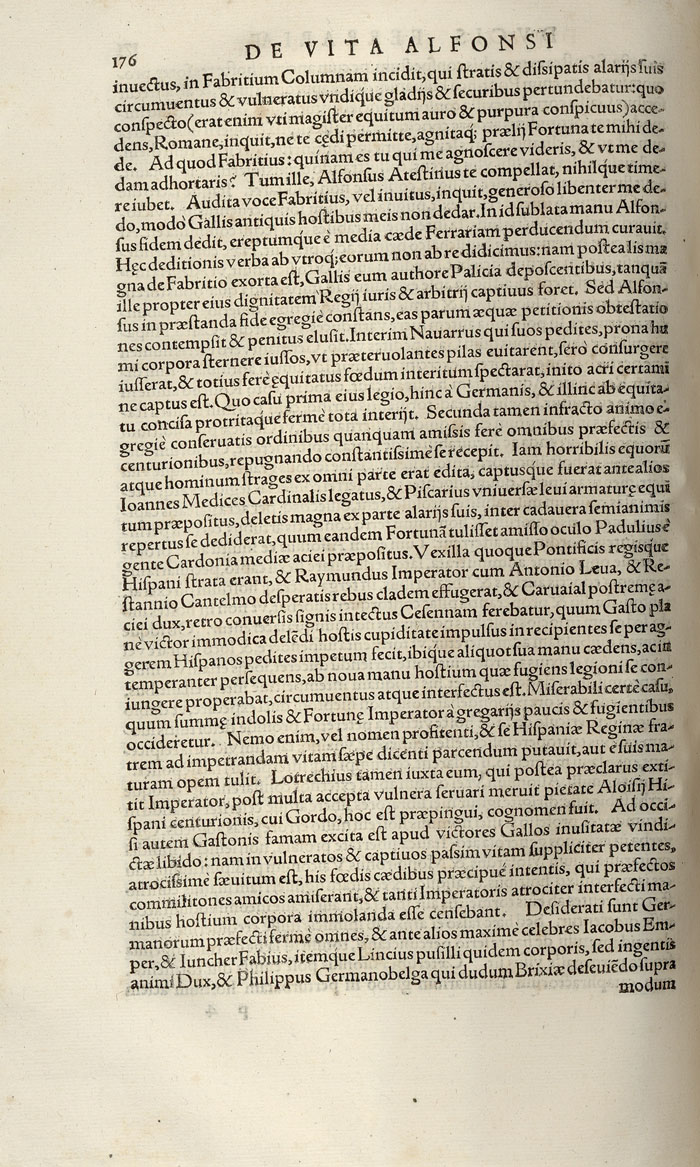 176
DE VITA ALFONSI
inuectus, in Fabritium Columnam incidit, qui stratis & dissipatis alarijs suis
circumuentus & vulneratus vndique gladijs & securibus pertundebatur: quo
conspecto (erat enim vti magister equitum auro & purpura conspicuus) acce-
dens, Romane, inquit, ne te cędi permitte, agnitaq; prælij Fortuna te mihi de-
de. Ad quod Fabritius: quinam es tu qui me agnoscere videris, & vt me de-
dam adhortaris? Tum ille, Alfonsus Atestinus te compellat, nihil que time-
re iubet. Audita voce Fabritius, vel inuitus, inquit, generoso libenter me de-
do, modò Gallis antiquis hostibus meis non dedar. In id sublata manu Alfon-
sus fidem dedit, ereptumque è media cæde Ferrariam perducendum curauit.
Hęc deditionis verba ab vtroq; eorum non ab re didicimus: nam postea lis ma
gna de Fabritio exorta est, Gallis eum authore Palicia deposcentibus, tanquã
ille propter eius dignitatem Regij iuris & arbitrij captiuus foret. Sed Alfon-
sus in præstanda fide egregiè constans, eas parum æquæ petitionis obtestatio
nes contempsit & penitus elusit. Interim Nauarrus qui suos pedites, prona hu
mi corpora sternere iussos, vt præteruolantes pilas euitarent, serò consurgere
iusserat, & totius ferè equitatus fœdum interitum spectarat, inito acri certami
ne captus est. Quo casu prima eius legio, hinc à Germanis, & illinc ab equita-
tu concisa protritaque fermè tota interijt. Secunda tamen infracto animo e-
gregiè conseruatis ordinibus quanquam amissis ferè omnibus præfectis &
centurionibus, repugnando constantissimè se recepit. Iam horribilis equorũ
atque hominum strages ex omni parte erat edita, captusque fuerat ante alios
Ioannes Medices Cardinalis legatus, & Piscarius vniuersæ leui armaturę equi
tum præpositus, deletis magna ex parte alarijs suis, inter cadauera semianimis
repertus se dediderat, quum eandem Fortunã tulisset amisso oculo Padulius è
gente Cardonia mediæ aciei præpositus. Vexilla quoque Pontificis regisque
Hispani strata erant, & Raymundus Imperator cum Antonio Leua, & Re-
stannio Cantelmo desperatis rebus cladem effugerat, & Caruaial postremę a-
ciei dux, retro conuersis signis intectus Cesennam ferebatur, quum Gasto pla
nè victor immodica delẽdi hostis cupiditate impulsus in recipientes se per ag-
gerem Hispanos pedites impetum fecit, ibique aliquot sua manu cædens, ac in
temperanter persequens, ab noua manu hostium quæ fugiens legioni se con-
iungere properabat, circumuentus atque interfectus est. Miserabili certè casu,
quum summę indolis & Fortunę Imperator à gregarijs paucis & fugientibus
occideretur. Nemo enim, vel nomen profitenti, & se Hispaniæ Reginæ fra-
trem ad impetrandam vitam sæpe dicenti parcendum putauit, aut è suis ma-
turam opem tulit. Lotrechius tamen iuxta eum, qui postea præclarus exti-
tit Imperator, post multa accepta vulnera seruari meruit pietate Aloisij Hi-
spani centurionis, cui Gordo, hoc est præpingui, cognomen fuit. Ad occi-
si autem Gastonis famam excita est apud victores Gallos inusitatæ vindi-
ctæ libido: nam in vulneratos & captiuos passim vitam suppliciter petentes,
atrocissimè sæuitum est, his fœdis cædibus præcipuè intentis, qui præfectos
commilitones amicos amiserant, & tanti Imperatoris atrociter interfecti ma-
nibus hostium corpora immolanda esse censebant. Desiderati sunt Ger-
manorum præfecti fermè omnes, & ante alios maximè celebres Iacobus Em-
per, & Iuncher Fabius, itemque Lincius pusilli quidem corporis, sed ingentis
animi Dux, & Philippus Germanobelga qui dudum Brixiæ deseuiẽdo supra
modum